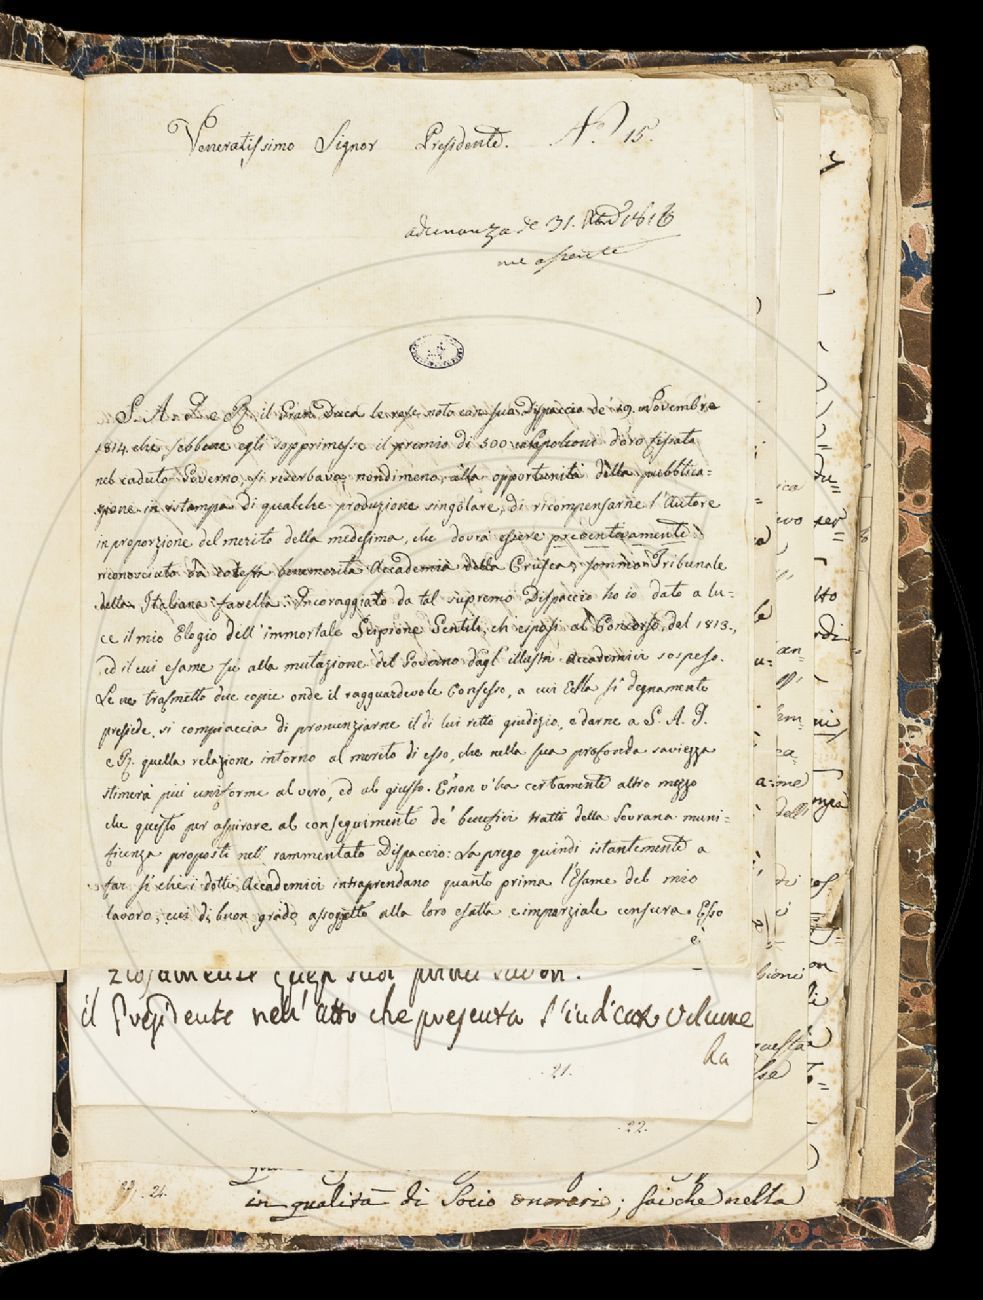 Veneratissimo Signor Presidente. N.º 15.
adunanza de 31. Xbre 1816
me assente
S. A. I. e R. il Gran Duca le rese noto con suo Dispaccio de' 29. Novembre
1814. che sebbene egli sopprimesse il premio di 500 Napoleoni d'oro fissato
nel caduto Governo, si riserbava nondimeno, alla opportunità della pubblica=
zione in istampa di qualche produzione singolare, di ricompensarne l'Autore
in proporzione del merito della medesima, che dovrà essere preventivamente
riconosciuto da cotesta benemerita Accademia della Crusca, sommo Tribunale
della Italiana favella. Incoraggiato da tal supremo Dispaccio ho io dato a lu=
ce il mio Elogio dell'immortale Scipione Gentili, ch'esposi al Concorso del 1813.,
ed il cui esame fu alla mutazione del Governo dagl'illustri Accademici sospeso.
Le ne trasmetto due copie onde il ragguardevole Consesso, a cui Ella sì degnamente
presiede, si compiaccia di pronunziarne il di lui retto giudizio, e darne a S. A. I.
e R. quella relazione intorno al merito di esso, che nella sua profonda saviezza
stimerà più uniforme al vero, ed al giusto. E non v'ha certamente altro mezzo
che questo per aspirare al conseguimento de' benefici tratti della Sovrana muni=
ficenza proposti nell'rammentato Dispaccio: La prego quindi istantemente a
far sì che i dotti Accademici intraprendano quanto prima l'Esame del mio
lavoro, cui di buon grado assoggetto alla loro esatta e imparziale censura. Esso
è
il Presidente nell'atto che presenta l'indicato Volume
ha
21.
22.
24.
in qualità di Socio onorario; fa che nella